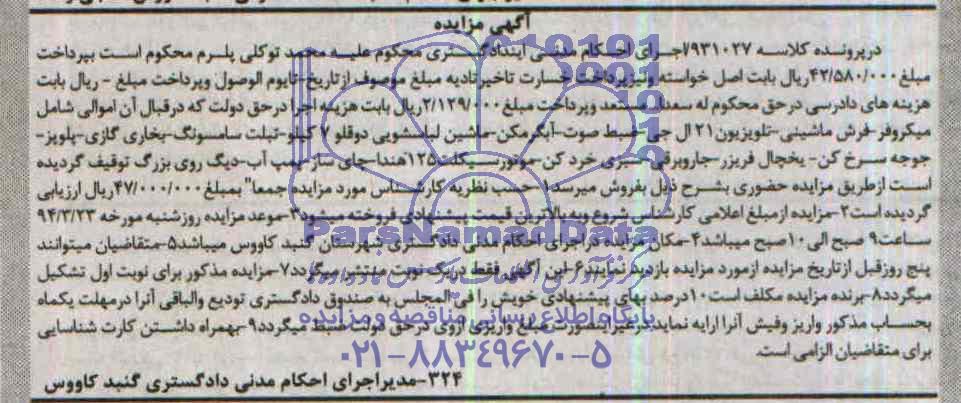 آگهی مزایده
درپرونده کلاسه ۹۳۱۰۲۷/اجرای احکام مدنی این دادگستری محکوم علیه محمد توکلی پلرم محکوم است بپرداخت
مبلغ ۴۲/۵۸۰/۰۰۰ریال بابت اصل خواسته ونیزپرداخت خسارت تاخیرتادیه مبلغ موصوف ازتاریخ-تایوم الوصول وپرداخت مبلغ - ریال بابت
هزینه های دادرسی درحق محکوم له سعداله مستعد وپرداخت مبلغ ۲/۱۲۹/۰۰۰ریال بابت هزینه اجرا درحق دولت که درقبال آن اموالی شامل
میکروفر-فرش ماشینی-تلویزیون۲۱ ال جی-ضبط صوت-آبگرمکن-ماشین لباسشویی دوقلو ۷ کیلو-تبلت سامسونگ-بخاری گازی-پلوپز-
جوجه سرخ کن- یخچال فریزر-جاروبرقی-سبزی خرد کن-موتورسیکلت۱۲۵هندا-چای ساز-پمپ آب-دیگ روی بزرگ توقیف گردیده
است ازطریق مزایده حضوری بشرح ذیل بفروش میرسد۱-حسب نظریه کارشناس مورد مزایده جمعا" بمبلغ ۴۷/۰۰۰/۰۰۰ریال ارزیابی
گردیده است۲-مزایده ازمبلغ اعلامی کارشناس شروع وبه بالاترین قیمت پیشنهادی فروخته میشود۳-موعد مزایده روزشنبه مورخه ۹۴/۳/۲۳
ساعت۹ صبح الی۱۰صبح میباشد۴-مکان مزایده دراجرای احکام مدنی دادگستری شهرستان گنبد کاووس میباشد۵-متقاضیان میتوانند
پنج روزقبل ازتاریخ مزایده ازمورد مزایده بازدید نمایند۶-این آگهی فقط دریک نوبت منتشر میگردد۷-مزایده مذکور برای نوبت اول تشکیل
میگردد۸-برنده مزایده مکلف است۱۰درصد بهای پیشنهادی خویش را فی المجلس به صندوق دادگستری تودیع والباقی آنرا درمهلت یکماه
بحساب مذکور واریز وفیش آنرا ارایه نماید درغیراینصورت مبلغ واریزی ازوی درحق دولت ضبط میگردد۹-بهمراه داشتن کارت شناسایی
برای متقاضیان الزامی است.
۳۲۴-مدیراجرای احکام مدنی دادگستری گنبد کاووس
ParsNamadData
پایگاه اطلاع رسانی مناقصه و مزایده
۰۲۱-۸۸۳۴۹۶۷۰-۵